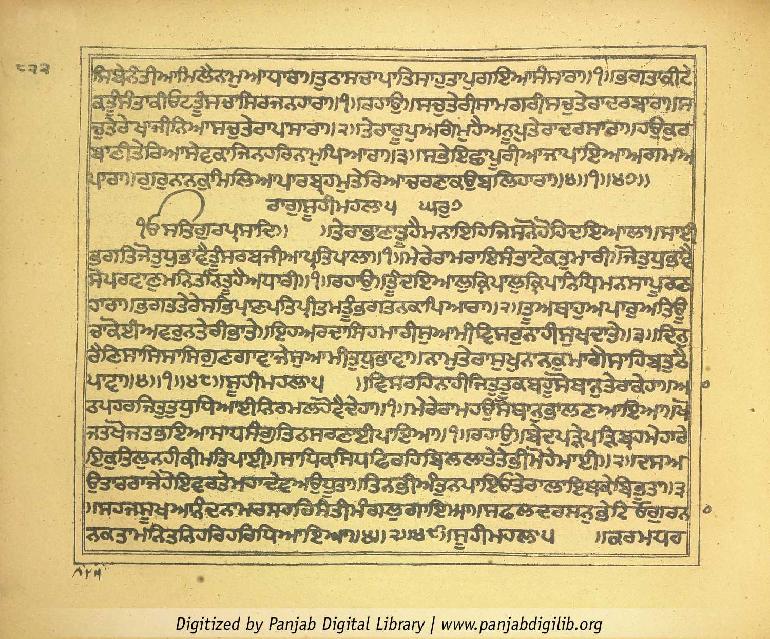 ੮੨੨
ਸਿਬੇਨੰਤੀਆਮਿਲੈਨਾਮੁਆਧਾਰਾ॥ਤੁਠਾਸਚਾਪਾਤਿਸਾਹੁਤਾਪੁਗਇਆਸੰਸਾਰਾ॥੧॥ਭਗਤਾਕੀਟੇ
ਕਤੂੰਸੰਤਾਕੀਓਟਤੂੰਸਚਾਸਿਰਜਨਹਾਰਾ॥੧॥ਰਹਾਉ॥ਸਚੁਤੇਰੀਸਾਮਗਰੀਸਚੁਤੇਰਾਦਰਬਾਰਾ॥ਸ
ਚੁਤੇਰੇਖਾਜੀਨਿਆਸਚੁਤੇਰਾਪਾਸਾਰਾ॥੨॥ਤੇਰਾਰੂਪੁਅਗੰਮੁਹੈਅਨੂਪੁਤੇਰਾਦਰਸਾਰਾ॥ਹਉਕੁਰ
ਬਾਣੀਤੇਰਿਆਸੇਵਕਾਜਿਨਹਰਿਨਾਮੁਪਿਆਰਾ॥੩॥ਸਭੇਇਛਾਪੂਰੀਆਜਾਪਾਇਆਅਗਮਅ
ਪਾਰਾ॥ਗੁਰੁਨਾਨਕੁਮਿਲਿਆਪਾਰਬ੍ਰਹਮੁਤੇਰਿਆਚਰਣਾਕਉਬਲਿਹਾਰਾ॥੪॥੧॥੪੭॥
ਰਾਗੁਸੂਹੀਮਹਲਾ੫ ਘਰੁ੭
ੴਸਤਿਗੁਰਪ੍ਰਸਾਦਿ॥ ॥ਤੇਰਾਭਾਣਾਤੂਹੈਮਨਾਇਹਿਜਿਸਨੋਹੋਹਿਦਇਆਲਾ॥ਸਾਈ
ਭਗਤਿਜੋਤੁਧੁਭਾਵੈਤੂੰਸਰਬਜੀਆਪ੍ਰਤਿਪਾਲਾ॥੧॥ਮੇਰੇਰਾਮਰਾਇਸੰਤਾਟੇਕਤੁਮਾਰੀ॥ਜੋਤੁਧੁਭਾਵੈ
ਸੋਪਰਵਾਣੁਮਨਿਤਨਿਤੂਹੈਆਧਾਰੀ॥੧॥ਰਹਾਉ॥ਤੂੰਦਇਆਲੁਕ੍ਰਿਪਾਲੁਕ੍ਰਿਪਾਨਿਧਿਮਨਸਾਪੂਰਣ
ਹਾਰਾ॥ਭਗਤਤੇਰੇਸਭਿਪ੍ਰਾਣਪਤਿਪ੍ਰੀਤਮਤੂੰਭਗਤਨਕਾਪਿਆਰਾ॥੨॥ਤੂਅਥਾਹੁਅਪਾਰੁਅਤਿਊ
ਚਾਕੋਈਅਵਰੁਨਤੇਰੀਭਾਤੇ॥ਇਹਅਰਦਾਸਿਹਮਾਰੀਸੁਆਮੀਵਿਸਰੁਨਾਹੀਸੁਖਦਾਤੇ॥੩॥ਦਿਨੁ
ਰੈਣਿਸਾਸਿਸਾਸਿਗੁਣਗਾਵਾਜੇਸੁਆਮੀਤੁਧੁਭਾਵਾ॥ਨਾਮੁਤੇਰਾਸੁਖੁਨਾਨਕੁਮਾਗੈਸਾਹਿਬਤੁਠੈ
ਪਾਵਾ॥੪॥੧॥੪੮॥ਸੂਹੀਮਹਲਾ੫ ॥ਵਿਸਰਹਿਨਾਹੀਜਿਤੁਤੂਕਬਹੂਸੋਥਾਨੁਤੇਰਾਕੇਹਾ॥ਆ
ਠਪਹਰਜਿਤੁਤੁਧੁਧਿਆਈਨਿਰਮਲਹੋਵੈਦੇਹਾ॥੧॥ਮੇਰੇਰਾਮਹਉਸੋਥਾਨੁਭਾਲਣਆਇਆ॥ਖੋ
ਜਤਖੋਜਤਭਇਆਸਾਧਸੰਗੁਤਿਨਸਰਣਾਈਪਾਇਆ॥੧॥ਰਹਾਉ॥ਬੇਦਪੜੇਪੜਿਬ੍ਰਹਮੇਹਾਰੇ
ਇਕੁਤਿਲੁਨਹੀਕੀਮਤਿਪਾਈ॥ਸਾਧਿਕਸਿਧਫਿਰਹਿਬਿਲਲਾਤੇਤੇਭੀਮੋਹੇਮਾਈ॥੨॥ਦਸਅ
ਉਤਾਰਰਾਜੇਹੋਇਵਰਤੇਮਹਾਦੇਵਅਉਧੂਤਾ॥ਤਿਨਭੀਅੰਤੁਨਪਾਇਓਤੇਰਾਲਾਇਥਕੇਬਿਭੂਤਾ॥੩
॥ਸਹਜਸੂਖਆਨੰਦਨਾਮਰਸਹਰਿਸੰਤੀਮੰਗਲੁਗਾਇਆ॥ਸਫਲਦਰਸਨੁਭੇਟਿਓਗੁਰਨਾ
ਨਕਤਾਮਨਿਤਨਿਹਰਿਹਰਿਧਿਆਇਆ॥੪॥੨॥੪੯॥ਸੂਹੀਮਹਲਾ੫ ॥ਕਰਮਧਰ
Digitized by Panjab Digital Library | www.panjabdigilib.org